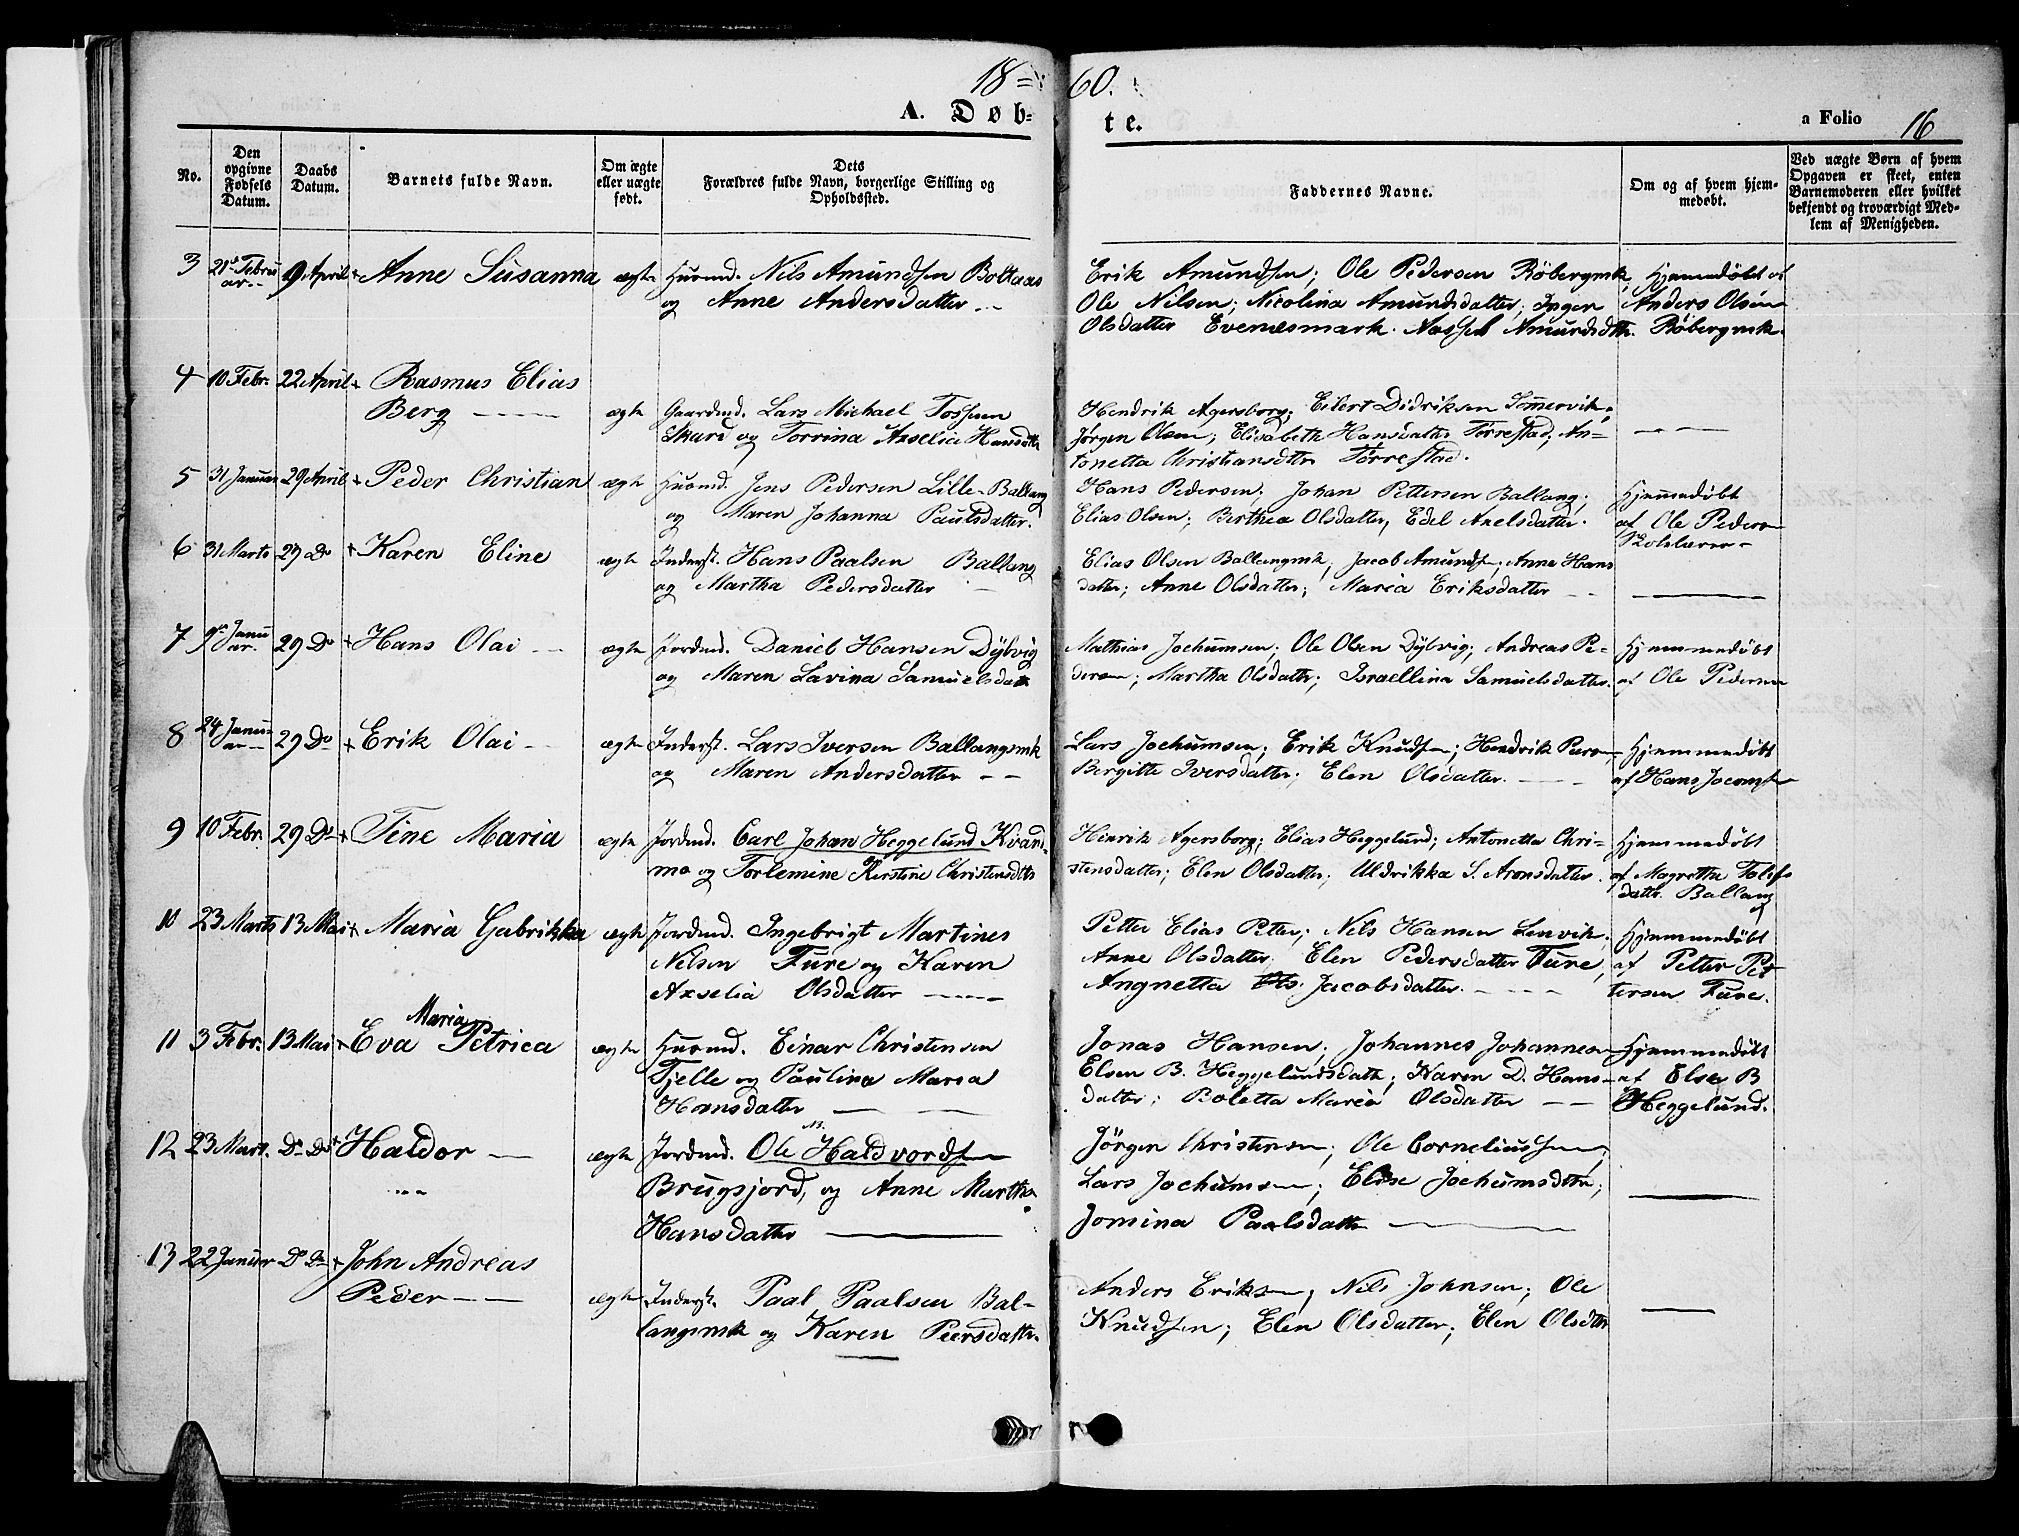 18=60.
A. Døb=te.
a Folio 16
No.
Den opgivne Fødsels Datum.
Daabs Datum.
Barnets fulde Navn.
Om ægte eller uægte født.
Dets Forældres fulde Navn, borgerlige Stilling og Opholdssted.
Faddernes Navne.
Om og af hvem hjemmedøbt.
Ved uægte Børn af hvem Opgaven er skeet, enten Barnemoderen eller hvilket bekjendt og troværdigt Medlem af Menigheden.
3 21de Februar 9 April Anne Susanna ægte Huusmd. Nils Amundsen Boltaas
og Anne Andersdatter
Erik Amundsen; Ole Pedersen Röbergmk,
Ole Nilsen; Nicolina Amundsdatter; Inger
Olsdatter Evenæsmark. Amundsdtr.
Hjemmedøbt af
Anders Olsen
Röbergmk.
4 10 Febr. 22 April Rasmus Elias
Berg
ægte Gaardmd. Lars Michael Tossen
Skard og Torrina Axselia Hansdttr
Hendrik Agersborg; Eilert Didriksen Sommervik;
Jørgen Olsen; Elisabeth Hansdatter Tørrestad; An=
tonetta Christiansdttr Tørrestad.
5 31 Januar 29 April Peder Christian ægte Huusmd. Jens Pedersen Lille-Ballang
og Maren Johanna Paulsdatter.
Hans Pedersen; Johan Pettersen Ballang;
Elias Olsen; Berthea Olsdatter, Edel Axelsdatter.
Hjemmedøbt
af Ole Pedersen
Skolelærer
6 31 Marts 29 Do Karen Eline ægte Inderst. Hans Paalsen Ballang
og Martha Pedersdatter
Elias Olsen Ballangmk, Jacob Amundsen; Anne Hans
datter; Anne Olsdatter; Maria Eriksdatter
7 9de Januar. 29 Do Hans Olai ægte Jordmd. Daniel Hansen Dÿbvig
og Maren Lavina Samuelsdatter
Mathias Jochumsen; Ole Olsen Dÿbvig; Andreas Pe=
dersen; Martha Olsdatter; Israellina Samuelsdatter.
Hjemmedøbt
af Ole Pedersen
8 24 Januar 29 Do Erik Olai ægte Inderst. Lars Iversen Ballangsmk
og Maren Andersdatter
Lars Jochumsen; Erik Knudsen; Hendrik Peersen
Bergitte Iversdatter; Elen Olsdatter.
Hjemmedøbt
af Hans
9 10 Febr. 29 Do Tine Maria ægte Jordmd. Carl Johan Heggelund Kvand=
mo og Torlemine Kerstine Christensdttr
Hinrik Agersborg; Elias Heggelund; Antonetta Chri=
stensdatter; Elen Olsdatter; Uldrikka S. Aronsdatter.
Hjemmedøbt
af Magretha
datter Ballang
10 23 Marts 13 Mai Maria Gabrikka ægte Jordmd. Ingebrigt Martines
Nilsen Fure og Karen
Axselia Olsdatter
Petter Elias Petter; Nils Hansen Lenvik;
Anne Olsdatter; Elen Pedersdatter Fure,
Angnetta Jacobsdatter.
Hjemmedøbt
af Petter Pet=
tersen Fure.
11 3 Febr. 13 Mai Eva Maria Petrica ægte Huusmd. Einar Christensen
Tjelle og Paulina Maria
Hansdatter
Jonas Hansen; Johannes Johannesen
Elsen B. Heggelundsdatter; Karen D. Hans=
datter; Boletta Maria Olsdatter
Hjemmedøbt
af Elsa B
Heggelund.
12 23 Mart. Do Do Haldor ægte Jordmd. Ole M. Haldvordsen
Brugsjord, og Anne Martha
Hansdatter
Jörgen Christensen; Ole Corneliussen;
Lars Jochumsen; Elise Jochumsdttr;
Jomina Paalsdatter
13 22 Januar Do Do John Andreas
Peder
ægte Inderst. Paal Paalsen Bal=
langsmk og Karen Peersdatter.
Anders Eriksen; Nils Johnsen; Ole
Knudsen; Elen Olsdatter; Elen Olsdttr